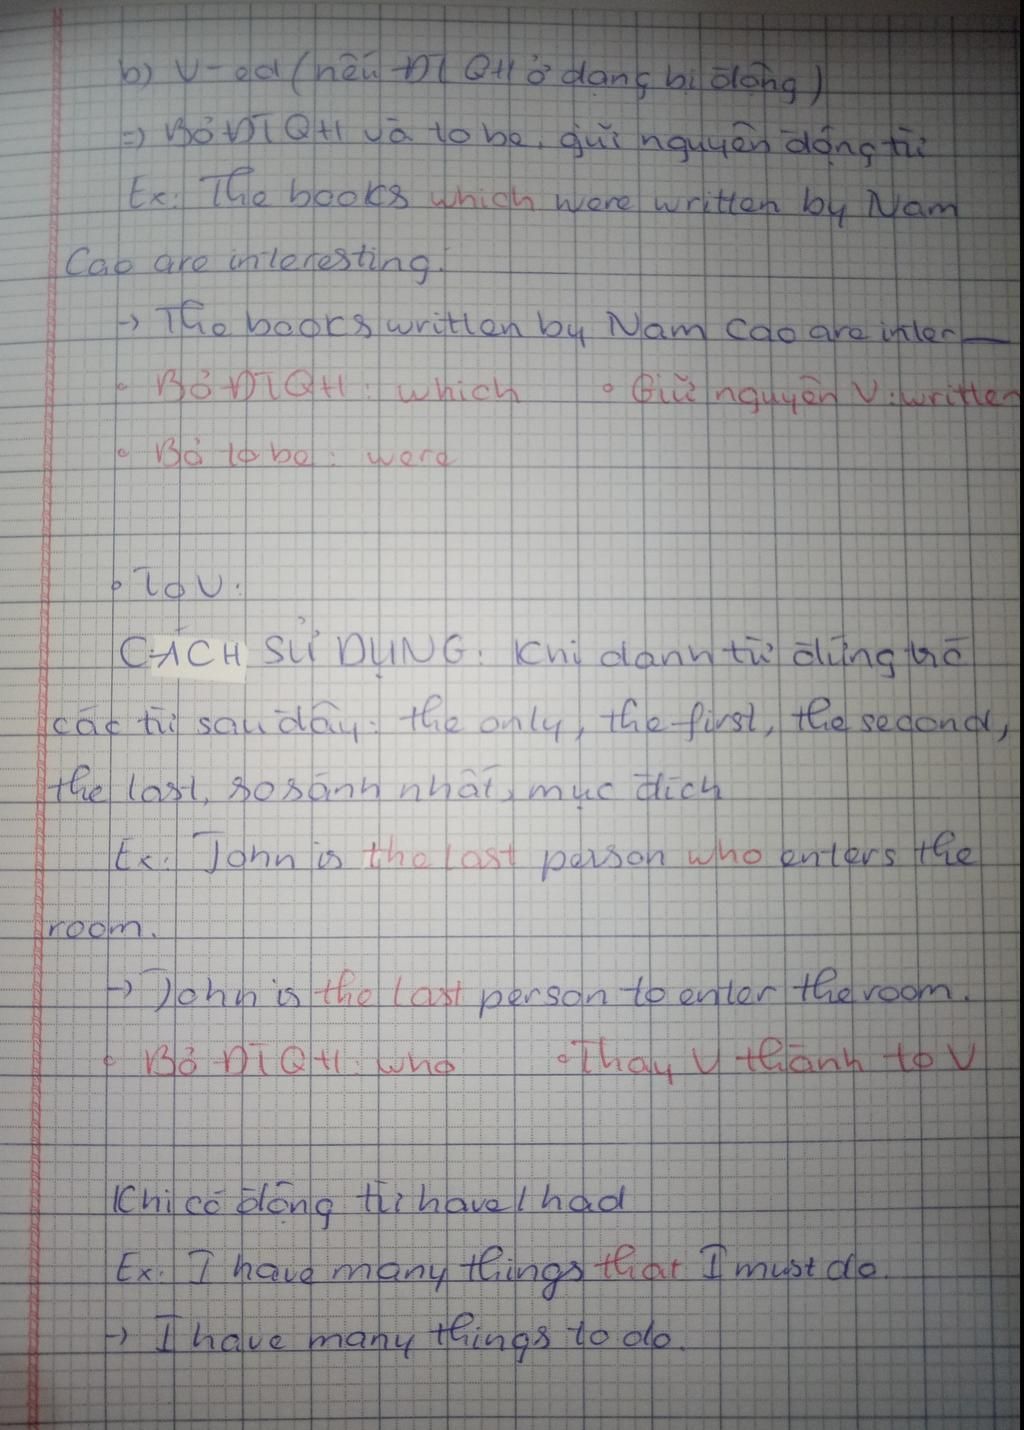 b) V-ed (nếu ĐTQH ở dạng bị động)
=) Bỏ ĐTQH và to be, giữ nguyên động từ
Ex: The books which were written by Nam
Cao are interesting.
-> The books written by Nam Cao are inter—
• Bỏ ĐTQH: which • Giữ nguyên V: written
• Bỏ to be: were
• To V:
CÁCH SỬ DỤNG: Khi danh từ đứng trc
các từ sau đây: the only, the first, the second,
the last, so sánh nhất, mục đích
Ex: John is the last person who enters the
room.
-> John is the last person to enter the room.
• Bỏ ĐTQH: who • Thay V thành to V
Khi có động từ have / had
Ex: I have many things that I must do.
-> I have many things to do.